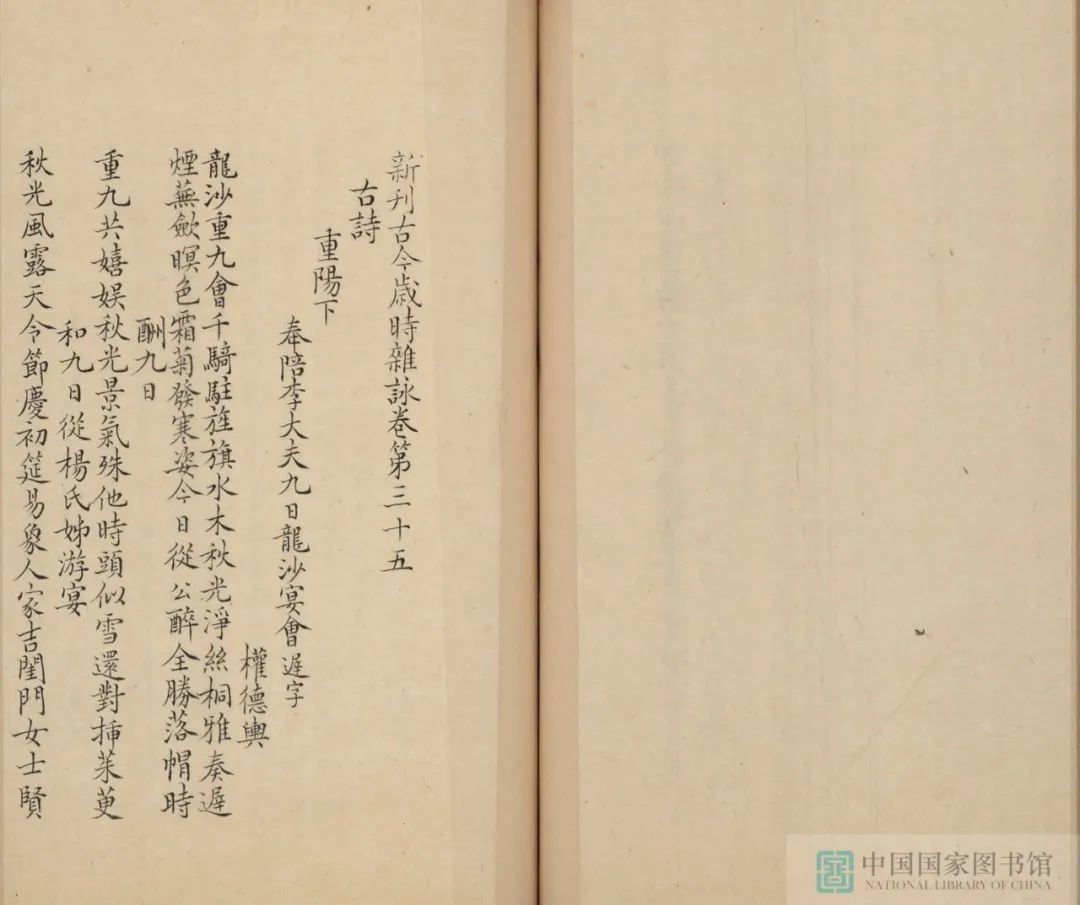 新刋古今歳時雜詠卷第三十五
古詩
重陽下
奉陪李大夫九日龍沙宴會遲字
權德輿
龍沙重九會千騎駐旌旗水木秋光淨絲桐雅奏遲
煙蕪歛暝色霜菊發寒姿今日從公醉全勝落帽時
酬九日
重九共嬉娱秋光景氣殊他時頭似雪還對揷茱萸
和九日從楊氏姊游宴
秋光風露天令節慶初筵易象人家吉閨門女士賢
中国国家图书馆
NATIONAL LIBRARY OF CHINA